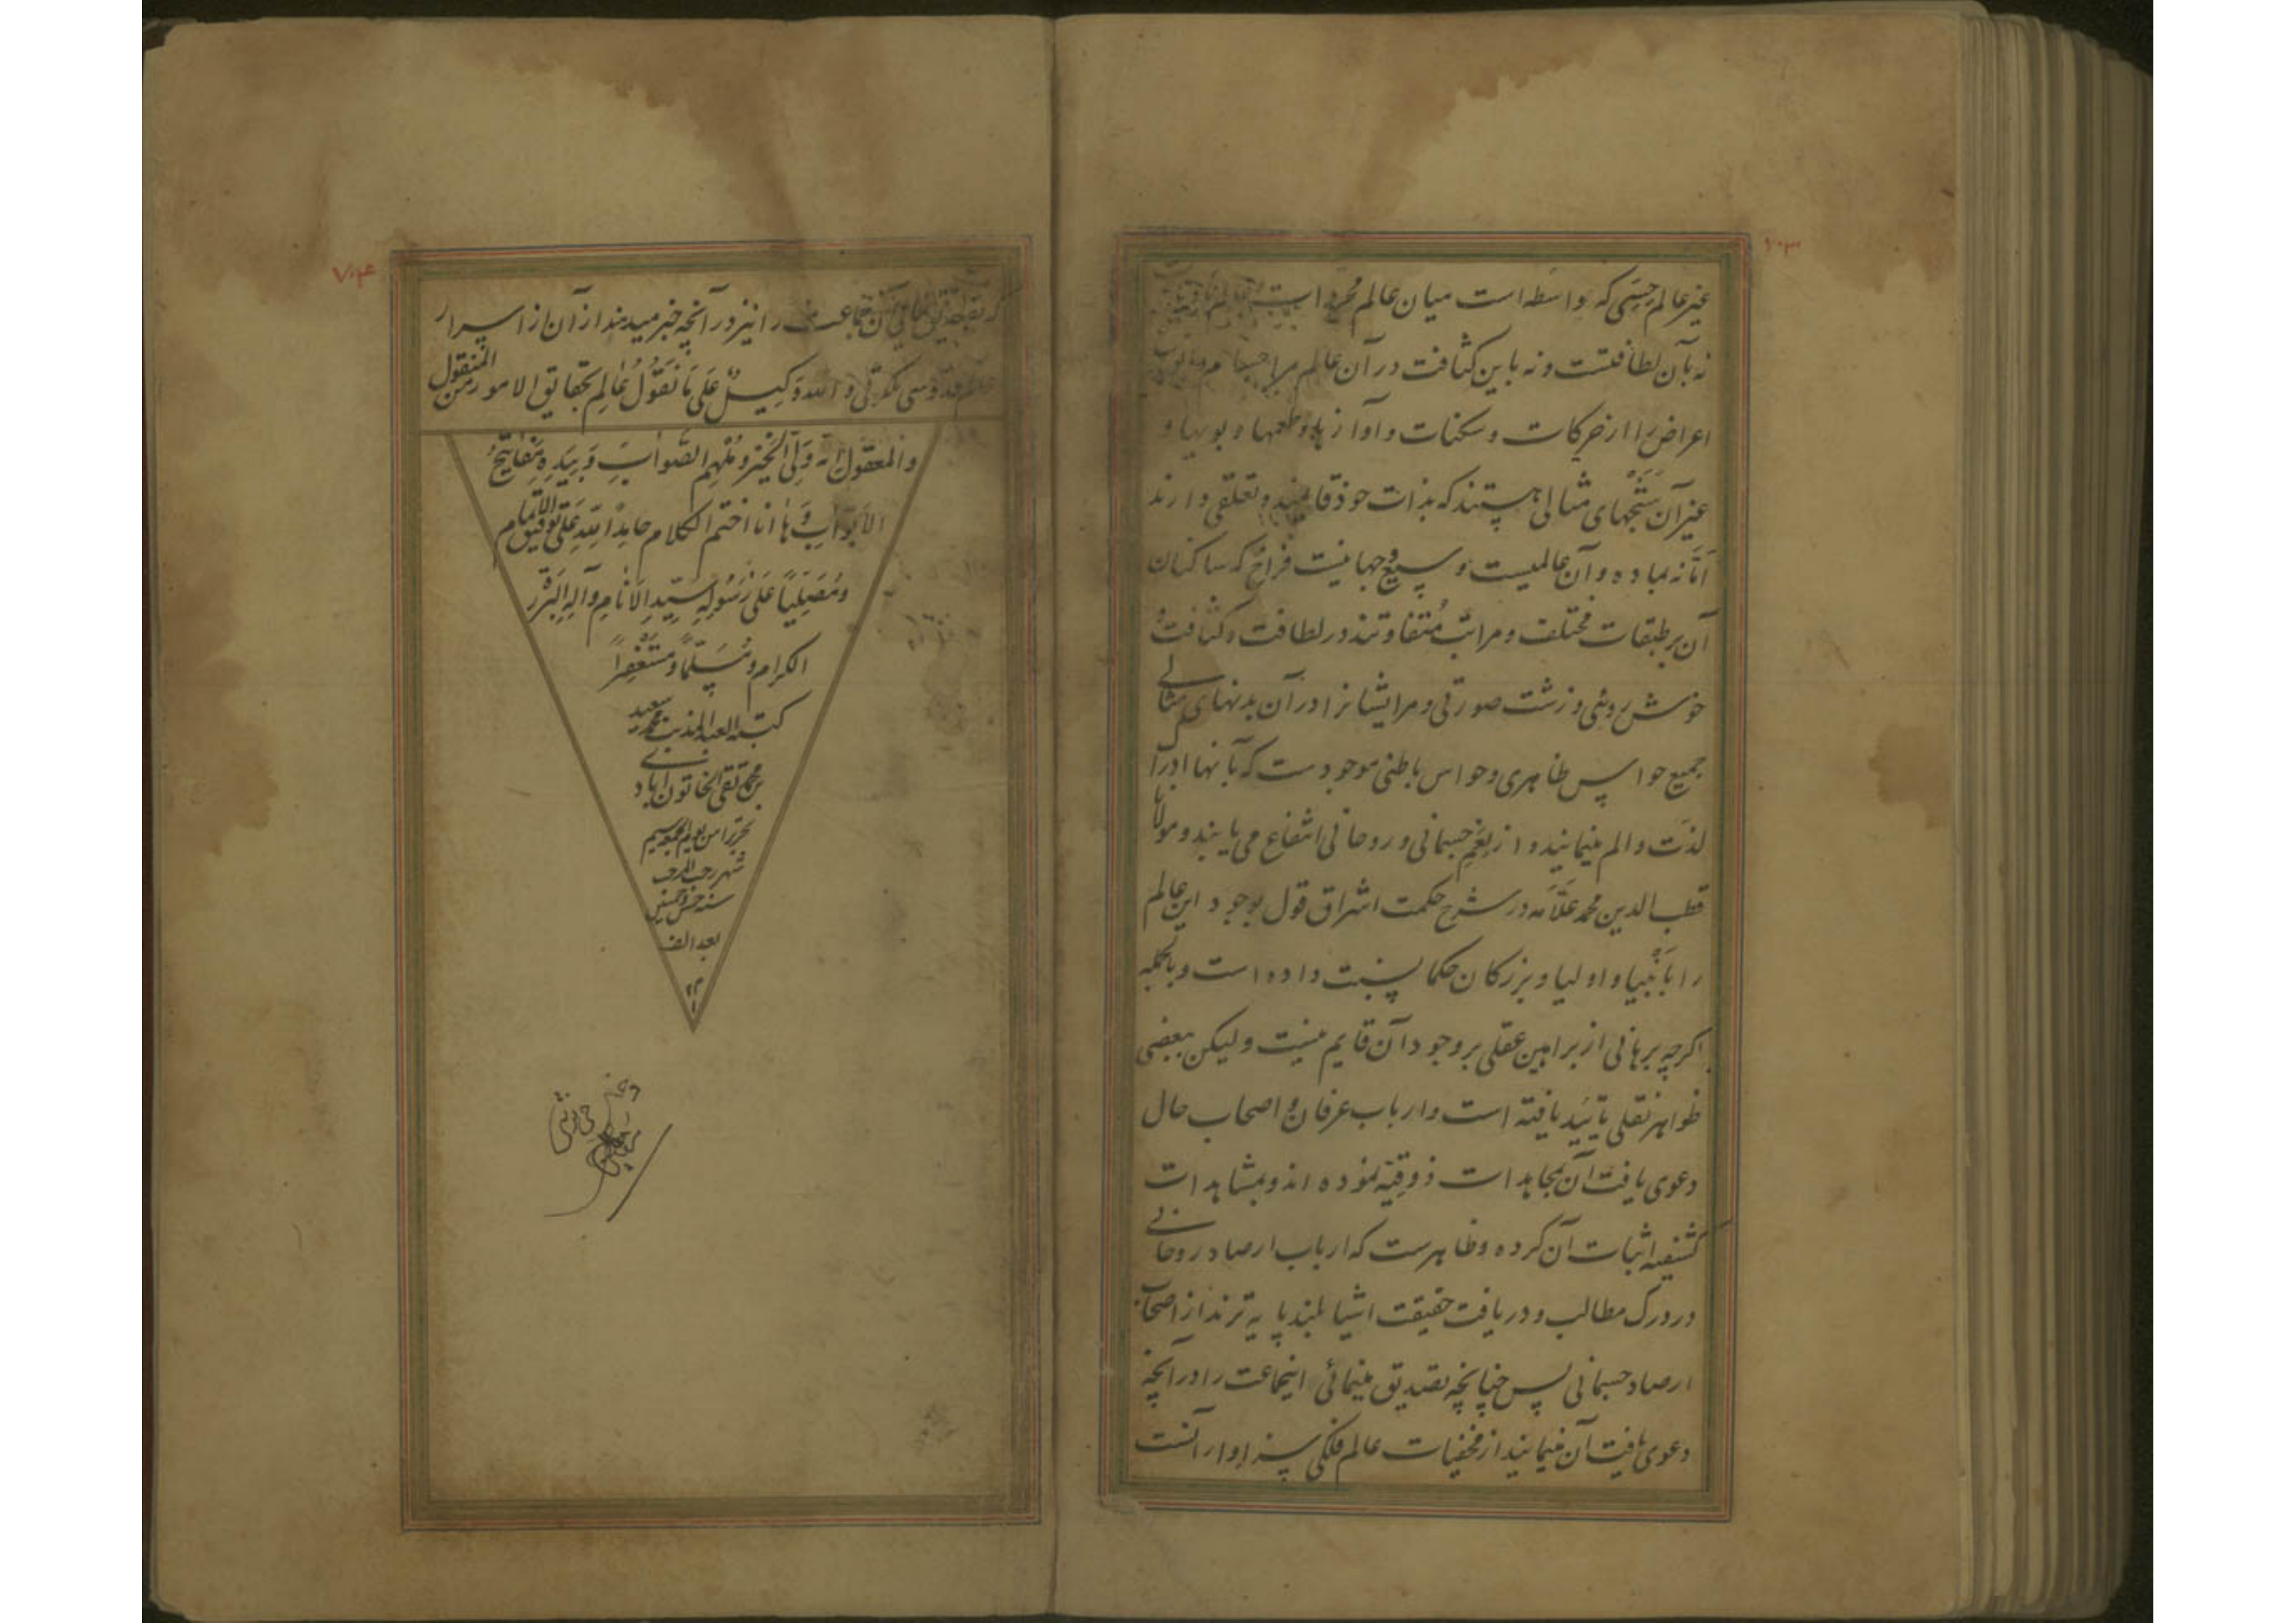 ۷۰۳
غیر عالم حسی که واسطه است میان عالم مجرد است
نه بآن لطافتست و نه باین کثافت در آن عالم مر اجسام و
اعراض را از حرکات و سکنات و آوازها و طعمها و بویها و
غیر آن شبحهای مثالی هستند که بذات خود قایمند و تعلقی دارند
اما نه بماده و آن عالمیست وسیع و جهانیست فراخ که ساکنان
آن بر طبقات مختلف و مراتب متفاوتند در لطافت و کثافت
خوش روئی و زشت صورتی و مر ایشانرا در آن بدنهای مثالی
جمیع حواس ظاهری و حواس باطنی موجودست که بآنها ادراک
لذت و الم مینمایند و از نعم جسمانی و روحانی انتفاع می یابند و مولانا
قطب الدین محمد علامه در شرح حکمت اشراق قول بوجود این عالم
را بانبیا و اولیا و بزرکان حکما نسبت داده است و بالجمله
اکرچه برهانی از براهین عقلی بر وجود آن قایم نیست ولیکن ببعضی
ظواهر نقلی تایید یافته است و ارباب عرفان و اصحاب حال
دعوی یافت آن بمجاهدات ذوقیه نموده اند و بمشاهدات
کشفیه اثبات آن کرده و ظاهرست که ارباب ارصاد روحانی
در درک مطالب و دریافت حقیقت اشیا بلند پایه ترند از اصحاب
ارصاد جسمانی پس چنانچه تصدیق مینمائی اینجماعت را در آنچه
دعوی یافت آن مینمایند از مخفیات عالم فلکی سزاوار آنست
۷۰۴
که تصدیق نمائی آن جماعت را نیز در آنچه خبر میدهند از آن از اسرار
عالم قدوسی ملکوتی و الله وکیل علی ما نقول عالم بحقایق الامور من المنقول
والمعقول انه ولی الخیر و ملهم الصواب و بیده مفاتیح
الابواب و ها انا اختم الکلام حامدا لله علی توفیق الاتمام
و مصلیا علی رسوله سید الانام و آله البررة
الکرام و مسلما و مستغفرا
کتبه العبد المذنب محمد سعید
بن محمد تقی الخاتون ابادی
تحریرا من یوم
شهر رجب المرجب
سنه خمس و خمسین
بعد الف